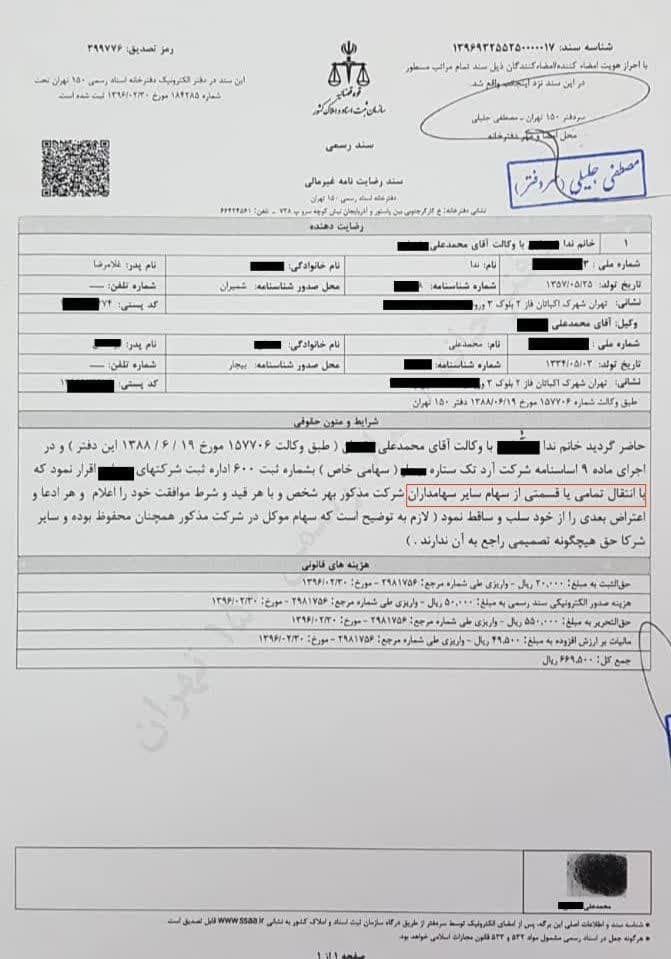 شناسه سند: ۱۳۹۶۹۳۲۵۵۲۵۰۰۰۰۱۷
با احراز هویت امضاء کننده/امضاءکنندگان ذیل سند تمام مراتب مسطور
در این سند نزد اینجانب واقع شد.
سردفتر ۱۵۰ تهران - مصطفی جلیلی
محل امضا و مهر دفترخانه
مصطفی جلیلی (سردفتر)
قوه قضائیه
سازمان ثبت اسناد و املاک کشور
سند رسمی
سند رضایت نامه غیرمالی
دفترخانه اسناد رسمی ۱۵۰ تهران
نشانی دفترخانه: خ کارگرجنوبی بین پاستور و آذربایجان نبش کوچه سرو پ ۷۳۸ - تلفن: ۶۶۴۲۴۵۶۱
رمز تصدیق: ۳۹۹۷۷۶
این سند در دفتر الکترونیک دفترخانه اسناد رسمی ۱۵۰ تهران تحت
شماره ۱۸۴۲۸۵ مورخ ۱۳۹۶/۰۲/۳۰ ثبت شده است.
رضایت دهنده
۱ خانم ندا با وکالت آقای محمدعلی
شماره ملی : ۳ نام: ندا نام خانوادگی: نام پدر: غلامرضا
تاریخ تولد: ۱۳۵۷/۰۵/۲۵ شماره شناسنامه: ۸ محل صدور شناسنامه: شمیران شماره تلفن: ----
نشانی: تهران شهرک اکباتان فاز ۲ بلوک ۳ ورو کد پستی: ۷۴
وکیل: آقای محمدعلی
شماره ملی : نام: محمدعلی نام خانوادگی: نام پدر:
تاریخ تولد: ۱۳۳۴/۰۵/۰۳ شماره شناسنامه: محل صدور شناسنامه: بیجار شماره تلفن: ----
نشانی: تهران شهرک اکباتان فاز ۲ بلوک ۳ و کد پستی:
طبق وکالت شماره ۱۵۷۷۰۶ مورخ ۱۳۸۸/۰۶/۱۹ دفتر ۱۵۰ تهران
شرایط و متون حقوقی
حاضر گردید خانم ندا با وکالت آقای محمدعلی ( طبق وکالت ۱۵۷۷۰۶ مورخ ۱۹ / ۶ / ۱۳۸۸ این دفتر ) و در
اجرای ماده ۹ اساسنامه شرکت آرد تک ستاره ( سهامی خاص ) بشماره ثبت ۶۰۰ اداره ثبت شرکتهای اقرار نمود که
با انتقال تمامی یا قسمتی از سهام سایر سهامداران شرکت مذکور بهر شخص و با هر قید و شرط موافقت خود را اعلام و هر ادعا و
اعتراض بعدی را از خود سلب و ساقط نمود ( لازم به توضیح است که سهام موکل در شرکت مذکور همچنان محفوظ بوده و سایر
شرکا حق هیچگونه تصمیمی راجع به آن ندارند . )
هزینه های قانونی
حق‌الثبت به مبلغ: ۲۰,۰۰۰ ریال - واریزی طی شماره مرجع: ۲۹۸۱۷۵۶ - مورخ: ۱۳۹۶/۰۲/۳۰
هزینه صدور الکترونیکی سند رسمی به مبلغ: ۵۰,۰۰۰ ریال - واریزی طی شماره مرجع: ۲۹۸۱۷۵۶ - مورخ: ۱۳۹۶/۰۲/۳۰
حق‌التحریر به مبلغ: ۵۵۰,۰۰۰ ریال - واریزی طی شماره مرجع: ۲۹۸۱۷۵۶ - مورخ: ۱۳۹۶/۰۲/۳۰
مالیات بر ارزش افزوده به مبلغ: ۴۹,۵۰۰ ریال - واریزی طی شماره مرجع: ۲۹۸۱۷۵۶ - مورخ: ۱۳۹۶/۰۲/۳۰
جمع کل: ۶۶۹,۵۰۰ ریال
محمدعلی
* شناسه سند و اطلاعات اصلی این برگه، پس از امضای الکترونیک توسط سردفتر از طریق درگاه سازمان ثبت اسناد و املاک کشور به نشانی www.ssaa.ir قابل تصدیق است.
* هرگونه جعل در اسناد رسمی مشمول مواد ۵۳۲ و ۵۳۳ قانون مجازات اسلامی خواهد بود.
صفحه ۱ از ۱